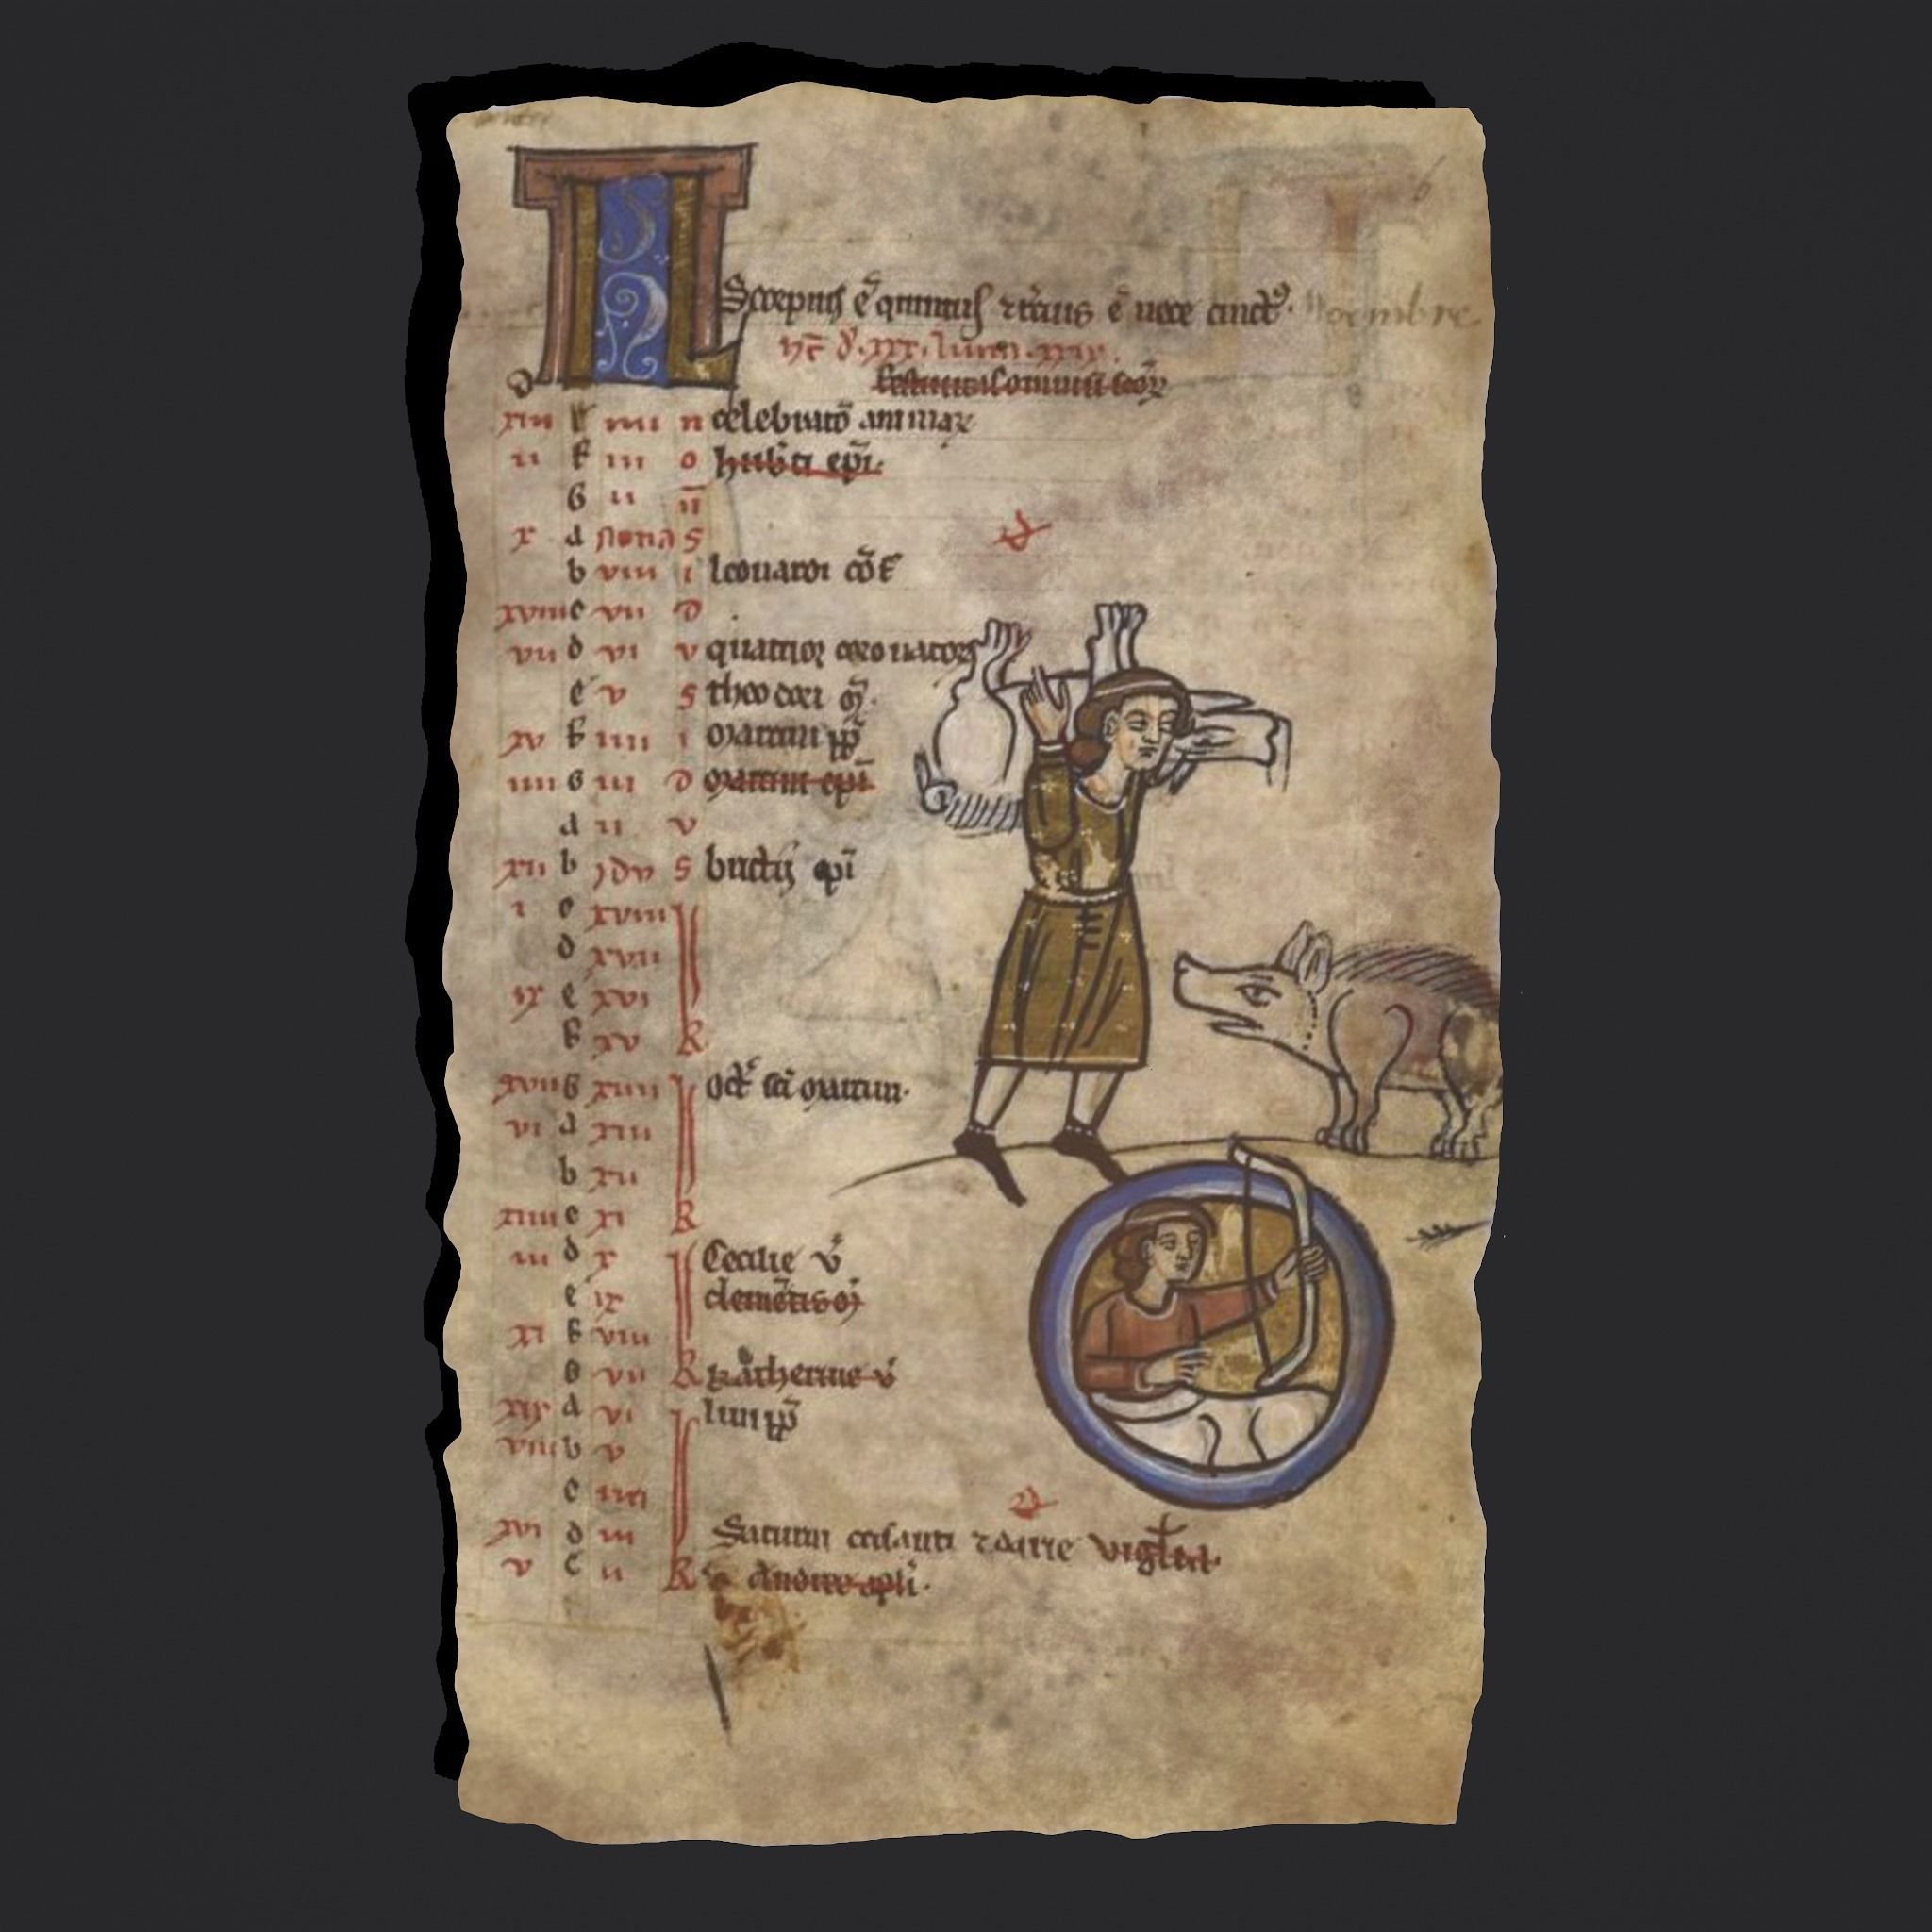 KL
Scorpius ē quintus ⁊ tercius ē nece cinctꝰ. Novembre
festiuitas omniū scoꝝ
xiii iiii n celebratō animaꝝ
ii f iii o hubti epī.
G ii
x A nonas S
b viii i leonardi cōf
xviii c vii D
vii d vi v quatuor coronatorꝝ
e v S theodori m̄.
xv f iiii i martini pp̄
iiii G iii D martini epī
A ii v
xii b ydus S brictii epī
i c xviii
d xvii
ix e xvi
f xv R
xvii G xiiii oct̄ sci martini.
vi A xiii
b xii
xiiii c xi R
iii d x Cecilie v̄
e ix clemētis m̄
xi f viii
G vii R katherine v̄
xix A vi lini pp̄
viii b v
c iiii
xvi d iii Saturnini crisanti ⁊ darie vigilia.
v e ii R andree apl̄i.